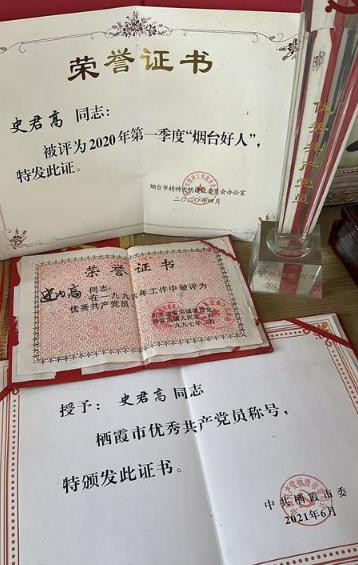 荣誉证书
史君高 同志:
被评为2020年第一季度“烟台好人”,
特发此证。
烟台市精神文明建设委员会办公室
二〇二〇年四月
优秀共产党员
荣誉证书
高 同志:
在一九九六年工作中被评为
优秀共产党员
一九九七年
授予: 史君高 同志
栖霞市优秀共产党员称号,
特颁发此证书。
中共栖霞市委
2021年6月